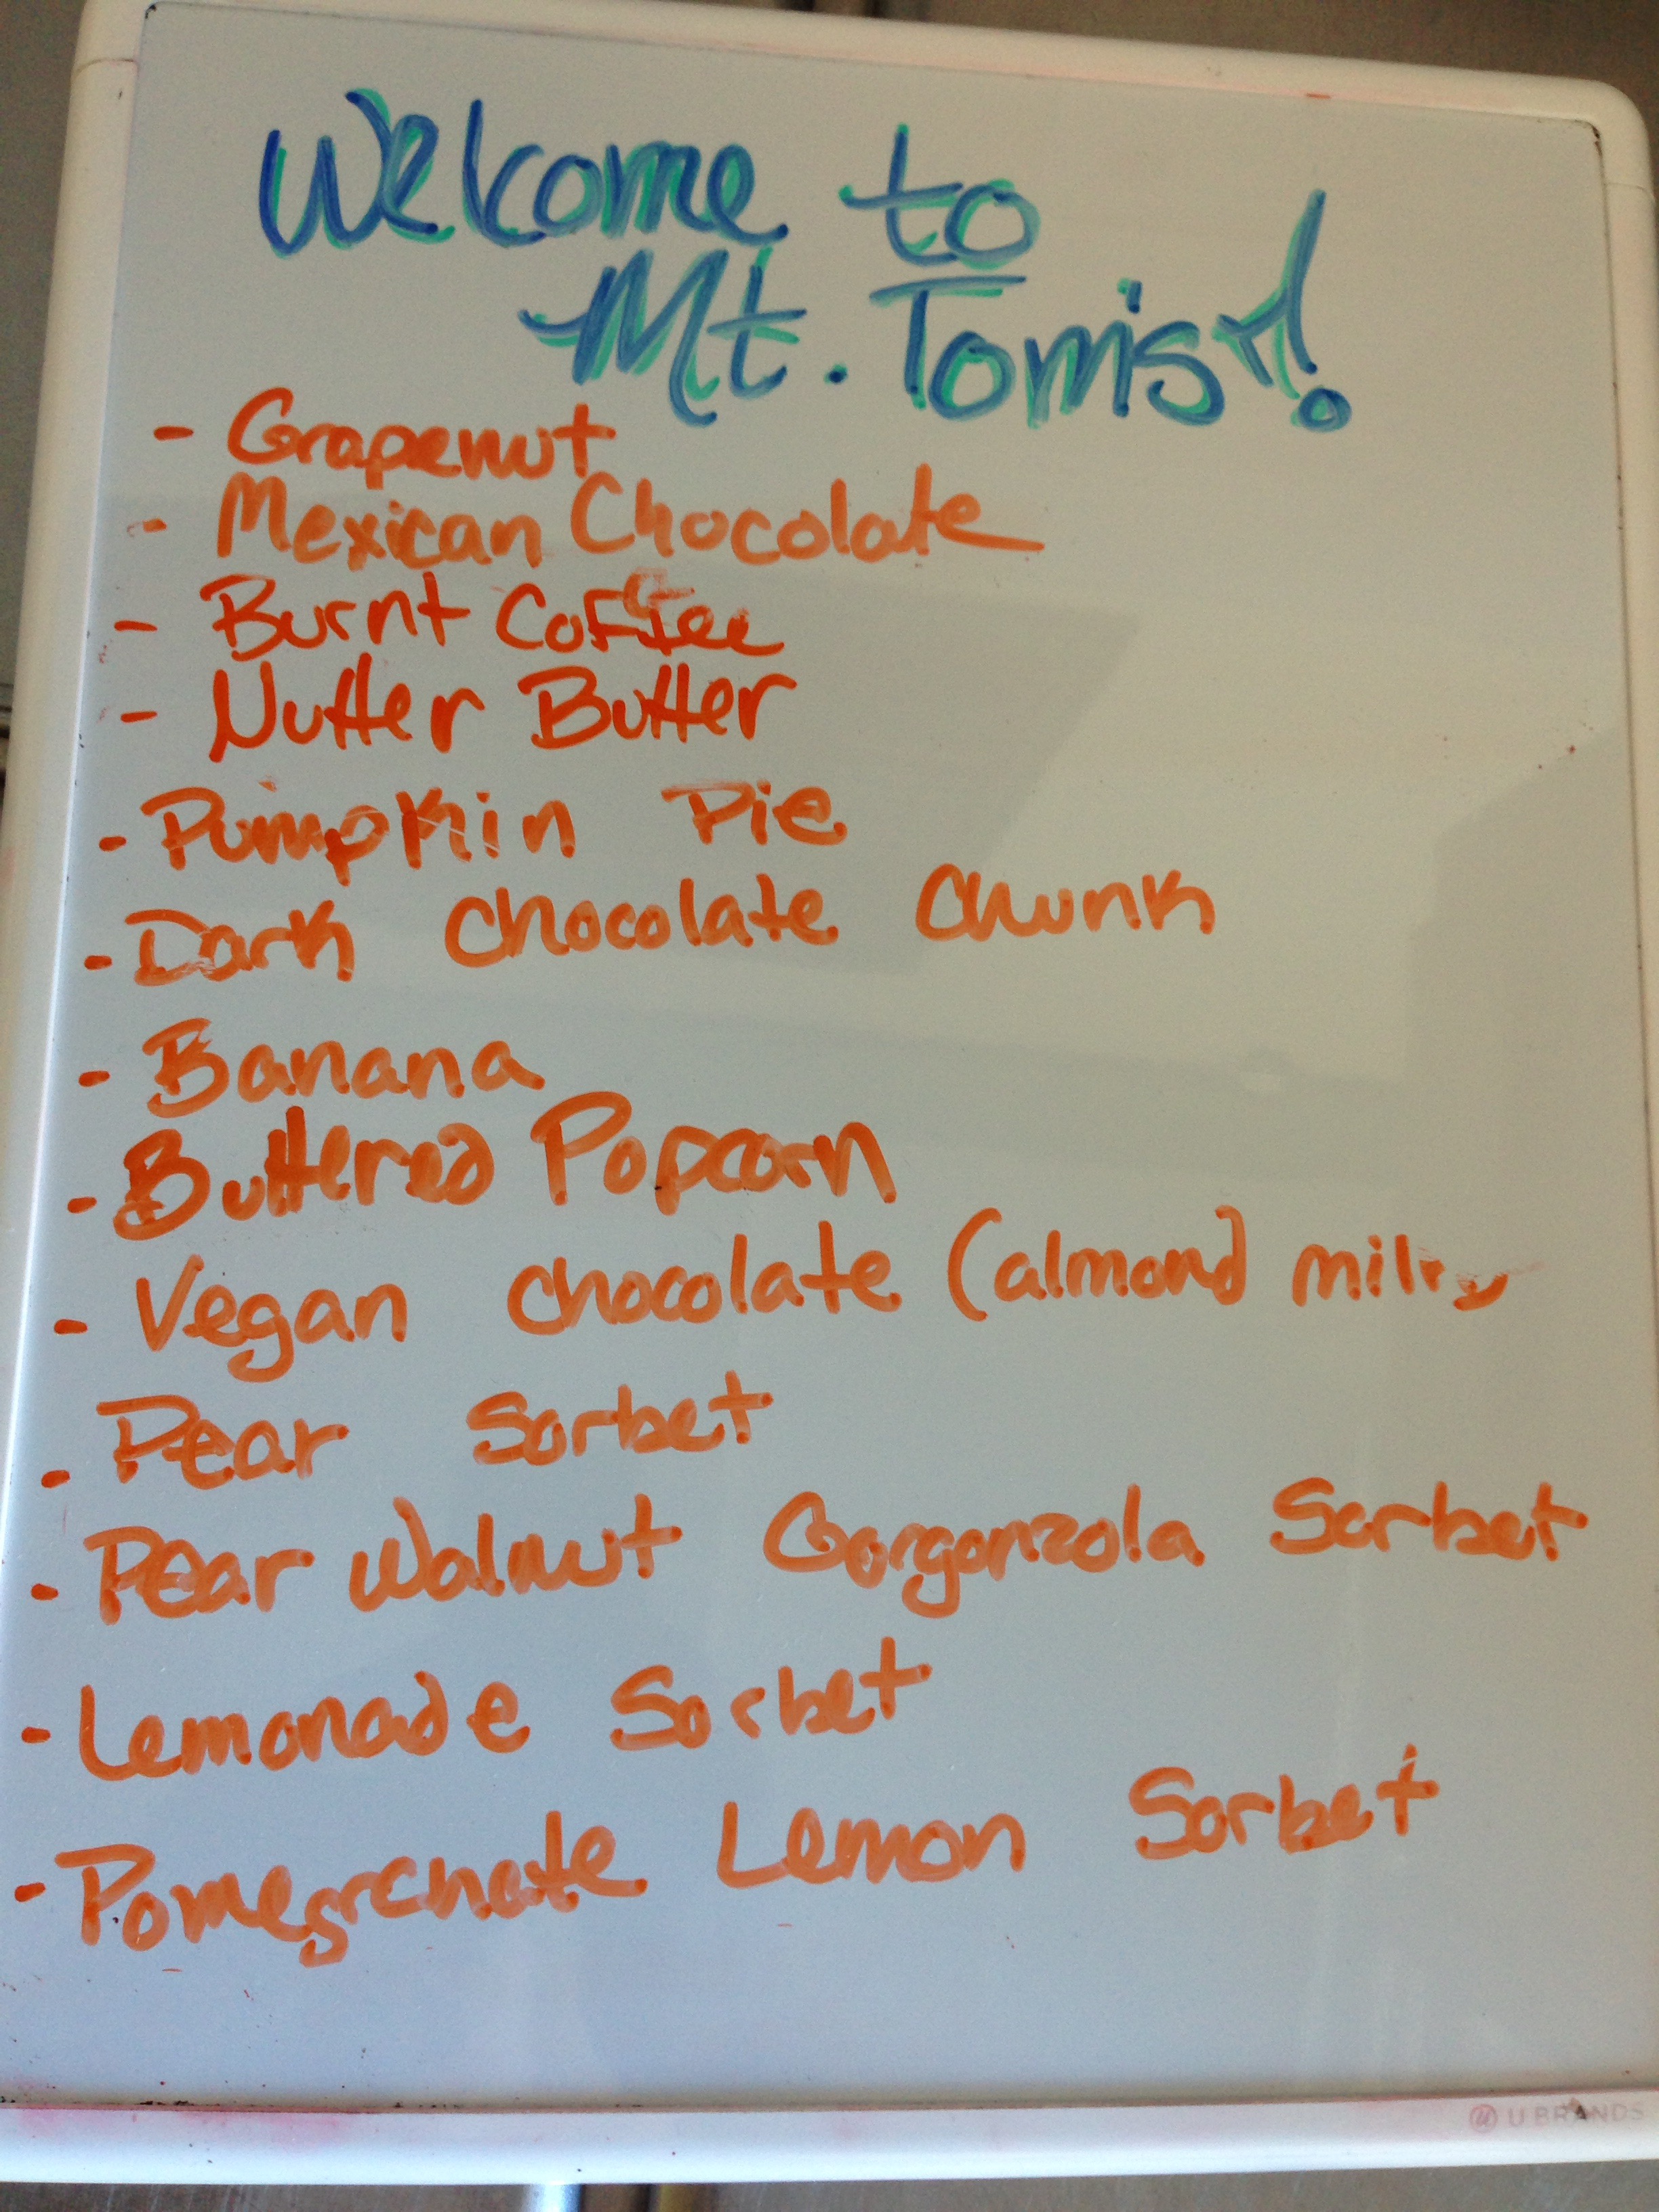 Welcome to
Mt. Tom's!
- Grapenut
- Mexican Chocolate
- Burnt Coffee
- Nutter Butter
- Pumpkin Pie
- Dark Chocolate Chunk
- Banana
- Buttered Popcorn
- Vegan Chocolate (almond milk)
- Pear Sorbet
- Pear Walnut Gorgonzola Sorbet
- Lemonade Sorbet
- Pomegranate Lemon Sorbet
U BRANDS